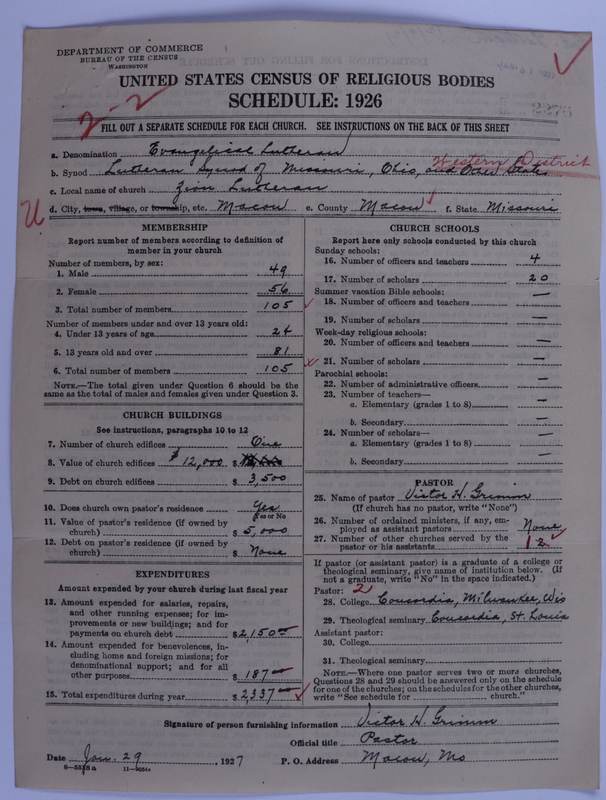 DEPARTMENT OF COMMERCE
BUREAU OF THE CENSUS
WASHINGTON
UNITED STATES CENSUS OF RELIGIOUS BODIES
SCHEDULE: 1926
2-2
FILL OUT A SEPARATE SCHEDULE FOR EACH CHURCH. SEE INSTRUCTIONS ON THE BACK OF THIS SHEET
a. Denomination Evangelical Lutheran
b. Synod Lutheran Synod of Missouri, Ohio, and Other States Western District
c. Local name of church Zion Lutheran
d. City, town, village, or township, etc. Macon e. County Macon f. State Missouri
U
MEMBERSHIP
Report number of members according to definition of
member in your church
Number of members, by sex:
1. Male 49
2. Female 56
3. Total number of members 105
Number of members under and over 13 years old:
4. Under 13 years of age 24
5. 13 years old and over 81
6. Total number of members 105
NOTE.—The total given under Question 6 should be the
same as the total of males and females given under Question 3.
CHURCH BUILDINGS
See instructions, paragraphs 10 to 12
7. Number of church edifices One
8. Value of church edifices $12,000 $
9. Debt on church edifices $ 3,500
10. Does church own pastor's residence Yes
Yes or No
11. Value of pastor's residence (if owned by
church) $ 5,000
12. Debt on pastor's residence (if owned by
church) $ None
EXPENDITURES
Amount expended by your church during last fiscal year
13. Amount expended for salaries, repairs,
and other running expenses; for im-
provements or new buildings; and for
payments on church debt $2,150—
14. Amount expended for benevolences, in-
cluding home and foreign missions; for
denominational support; and for all
other purposes $ 187—
15. Total expenditures during year $ 2,337—
CHURCH SCHOOLS
Report here only schools conducted by this church
Sunday schools:
16. Number of officers and teachers 4
17. Number of scholars 20
Summer vacation Bible schools:
18. Number of officers and teachers —
19. Number of scholars —
Week-day religious schools:
20. Number of officers and teachers —
21. Number of scholars —
Parochial schools:
22. Number of administrative officers —
23. Number of teachers—
a. Elementary (grades 1 to 8) —
b. Secondary —
24. Number of scholars—
a. Elementary (grades 1 to 8) —
b. Secondary —
PASTOR
25. Name of pastor Victor H. Grimm
(If church has no pastor, write "None")
26. Number of ordained ministers, if any, em-
ployed as assistant pastors None
27. Number of other churches served by the
pastor or his assistants 1 2
If pastor (or assistant pastor) is a graduate of a college or
theological seminary, give name of institution below. (If
not a graduate, write "No" in the space indicated.)
Pastor: 2
28. College Concordia, Milwaukee, Wis
29. Theological seminary Concordia, St. Louis
Assistant pastor:
30. College
31. Theological seminary
NOTE.—Where one pastor serves two or more churches,
Questions 28 and 29 should be answered only on the schedule
for one of the churches; on the schedules for the other churches,
write "See schedule for church."
Signature of person furnishing information Victor H. Grimm
Official title Pastor
Date Jan. 29, 1927 P. O. Address Macon, Mo